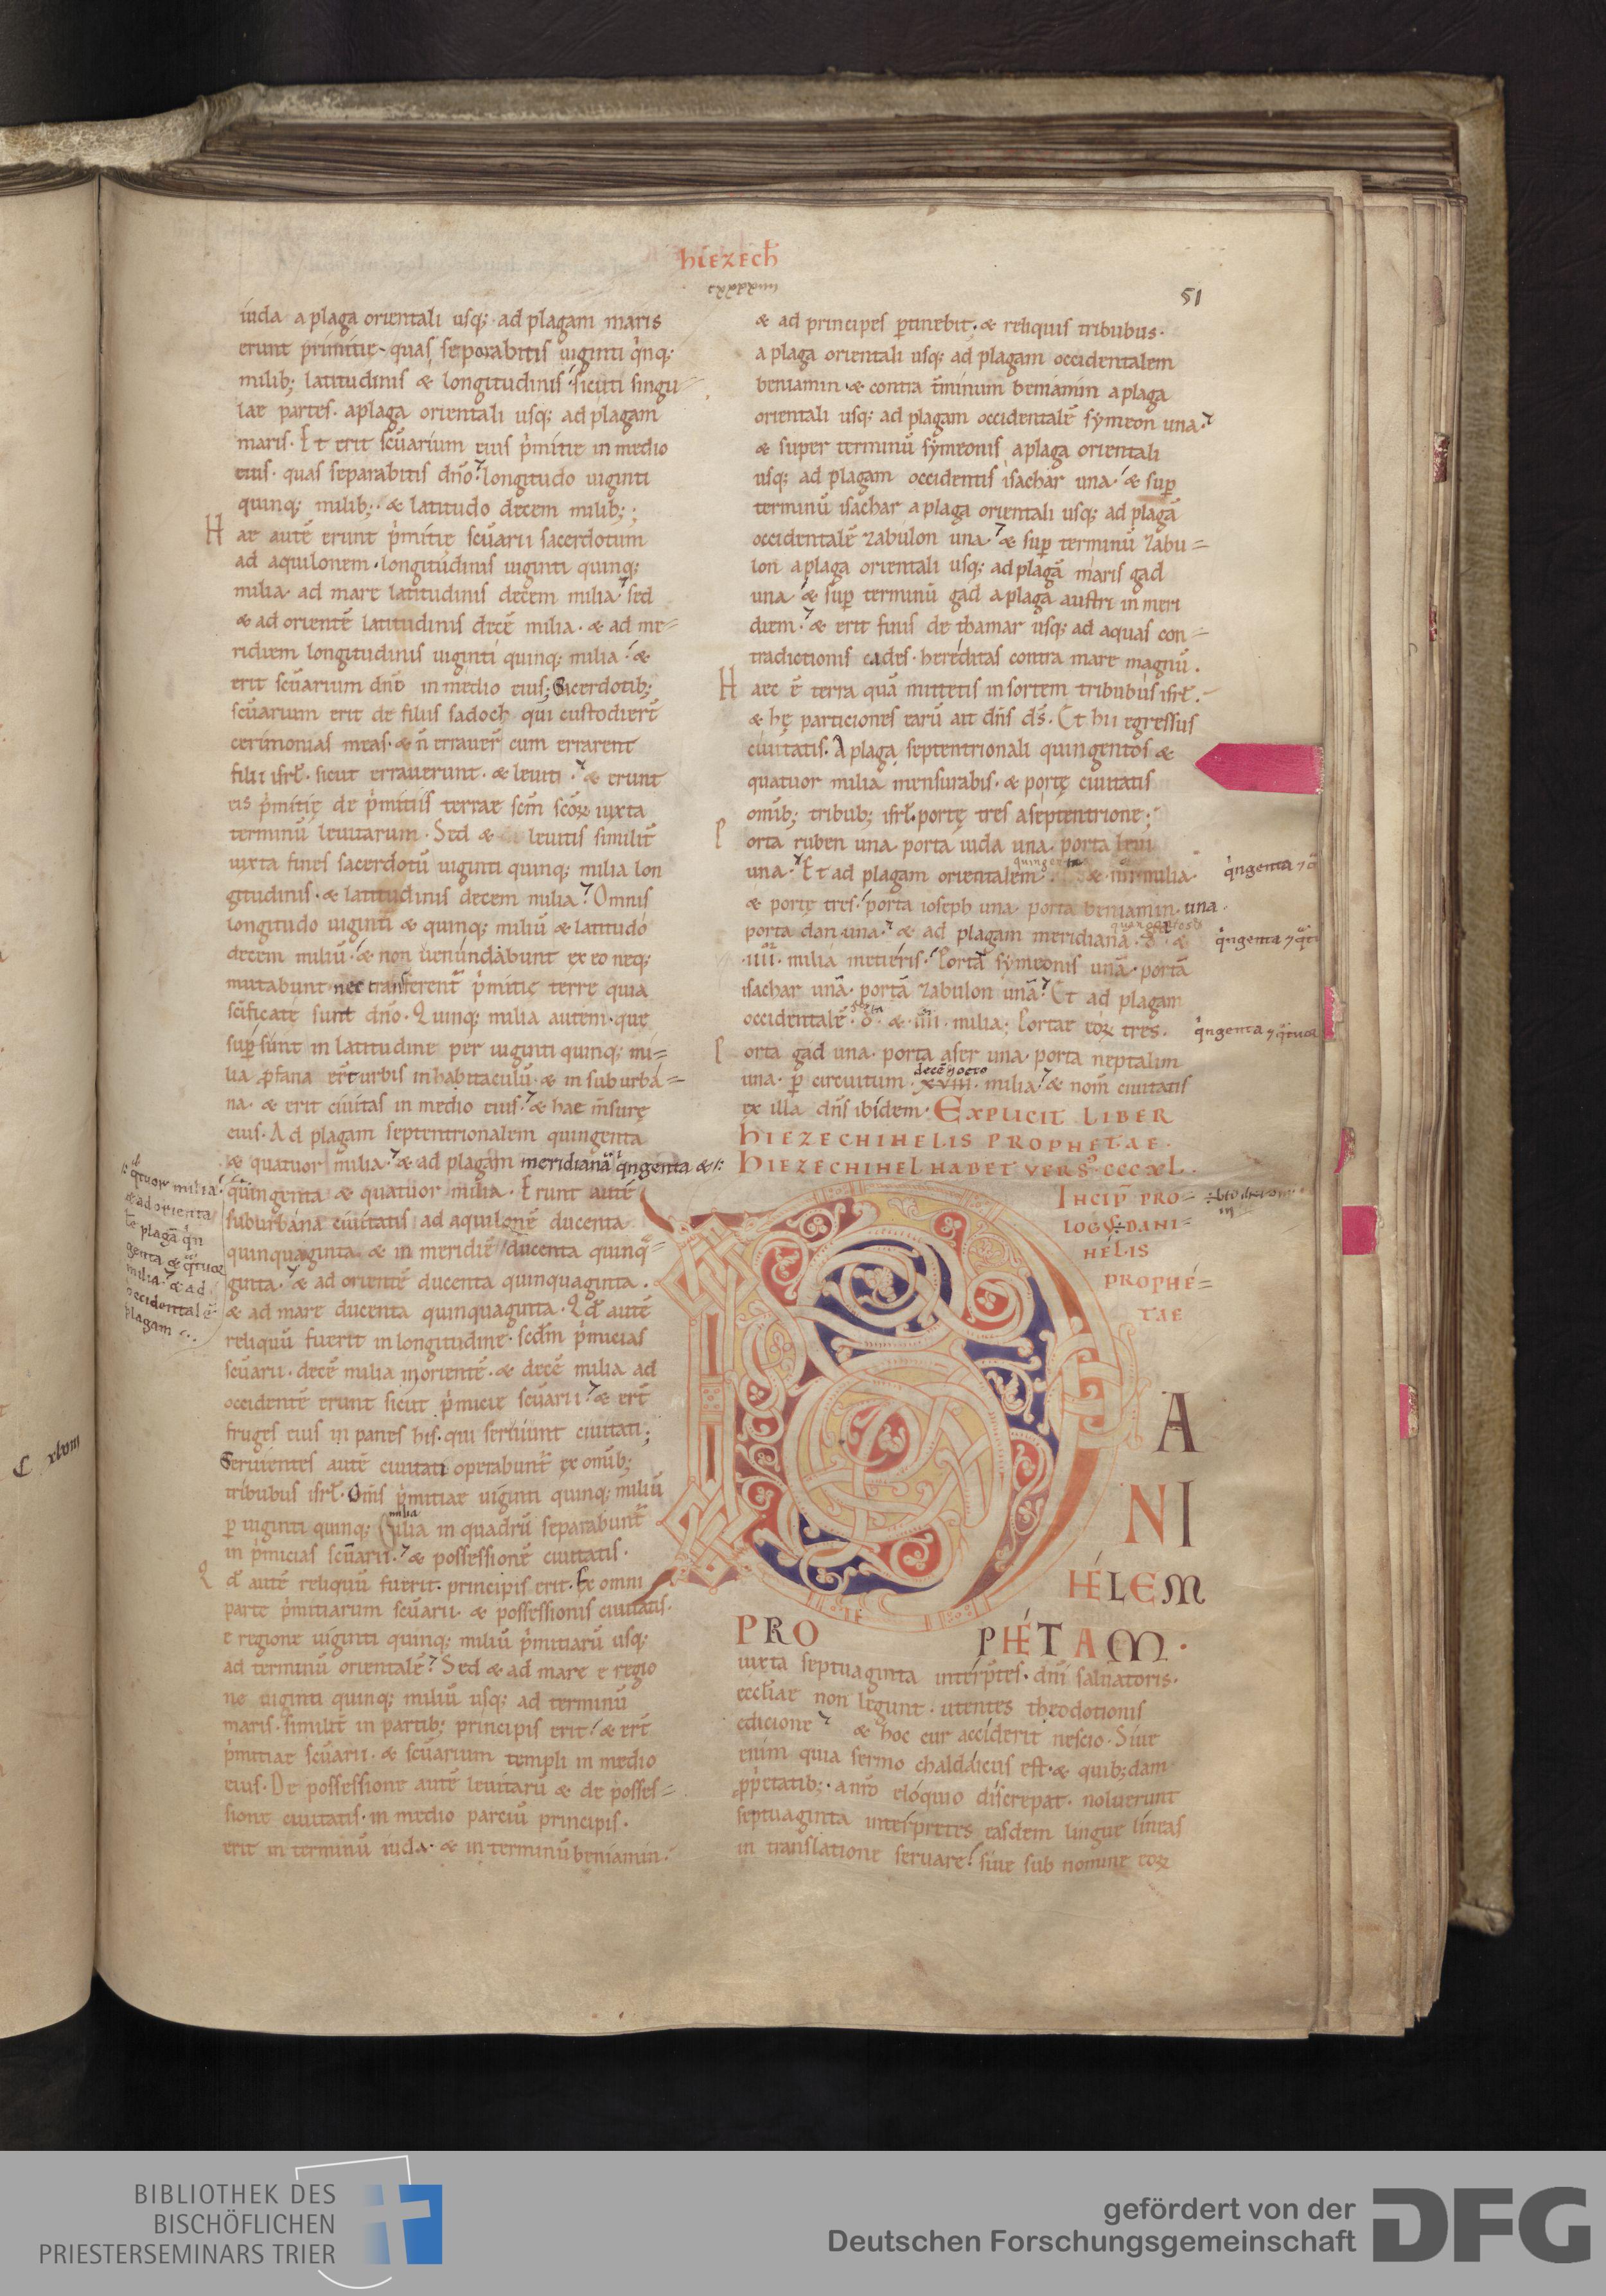 hiezech̄
51
iuda a plaga orientali usq; ad plagam maris
erunt primitie quas separabitis uiginti q̍nq;
milib; latitudinis & longitudinis sicuti singu
lae partes. aplaga orientali usq; ad plagam
maris. Et erit scūarium eius p̍mitie in medio
eius. quas separabitis dn̄o. longitudo uiginti
quinq; milib;. & latitudo decem milib;;
Hae autē erunt p̍mitię scūarii sacerdotum
ad aquilonem. longitudinis uiginti quinq;
milia. ad mare latitudinis decem milia. sed
& ad orientē latitudinis decē milia. & ad me=
ridiem longitudinis uiginti quinq; milia. &
erit scūarium dn̄o in medio eius; Sacerdotib;
scūarium erit de filiis sadoch qui custodier̄t
cerimonias meas. & n̄ errauer̄ cum errarent
filii isrł. sicut errauerunt. & leuiti. & erunt
eis p̍mitię de p̍mitiis terrae scm̄ scoꝝ iuxta
terminū leuitarum. Sed & leuitis similit̄
iuxta fines sacerdotū uiginti quinq; milia lon
gitudinis. & latitudinis decem milia. Omnis
longitudo uiginti & quinq; miliū & latitudo
decem miliū. & non uenundabunt ex eo neq;
mutabunt nec transferent̄ p̍mitię terre quia
scīficate sunt dn̄o. Quinq; milia autem. que
supsunt in latitudine per uiginti quinq; mi=
lia. pfana er̄t urbis in habitaculū. & in suburba=
na. & erit ciuitas in medio eius. & hae m̄surę
eius. Ad plagam septentrionalem quingenta
& quatuor milia. & ad plagam meridianā q̍ngenta &
quingenta & quatuor milia. Erunt autē
suburbana ciuitatis ad aquilonē ducenta
quinquaginta & in meridiē ducenta quinq=
ginta. & ad orientē ducenta quinquaginta.
& ad mare ducenta quinquaginta. Qd̄ autē
reliquū fuerit in longitudine. scdm̄ p̍micias
scūarii. decē milia in orientē. & decē milia ad
occidentē erunt sicut p̍micie scūarii. & er̄t
fruges eius in panes his. qui seruiunt ciuitati;
Seruientes autē ciuitati operabunt̄ ex omīb;
tribubus isrł. Om̄s p̍mitiae uiginti quinq; miliū
p uiginti quinq; milia in quadrū separabunt̄
in p̍micias scūarii. & possessionē ciuitatis.
Qd̄ autē reliquū fuerit. principis erit. Ex omni
parte p̍mitiarum scūarii. & possessionis ciuitatis.
e regione uiginti quinq; miliū p̍mitiarū usq;
ad terminū orientalē. Sed & ad mare e regio
ne uiginti quinq; miliū usq; ad terminū
maris. similit̄ in partib; principis erit. & er̄t
p̍mitiae scūarii. & scūarium templi in medio
eius. De possessione autē leuitarū & de posses=
sione ciuitatis. in medio parciū principis.
erit in terminū iuda. & in terminū beniamin.
q̍tuor milia.
& ad orienta
lē plagā q̍n
genta & q̍tuor
milia. & ad
occidentalē
plagam
& ad principes ptinebit. & reliquis tribubus.
a plaga orientali usq; ad plagam occidentalem
beniamin. & contra t̄minum beniamin aplaga
orientali usq; ad plagam occidentalē symeon una.
& super terminū symeonis aplaga orientali
usq; ad plagam occidentis isachar una. & sup
terminū isachar a plaga orientali usq; ad plagā
occidentalē zabulon una. & sup terminū zabu=
lon aplaga orientali usq; ad plagā maris gad
una. & sup terminū gad aplaga austri in meri
diem. & erit finis de thamar usq; ad aquas con=
tradictionis cades. hereditas contra mare magnū.
Haec ē terra quā mittetis in sortem tribubus isrł.
& hę particiones earū ait dn̄s d̄s. Et hii egressus
ciuitatis. A plaga septentrionali quingentos &
quatuor milia mensurabis. & portę ciuitatis
omīb; tribub; isrł. portę tres aseptentrione;
Porta ruben una. porta iuda una. porta leui
una. Et ad plagam orientalem quingenta & iiii milia.
& portę tres. porta ioseph una. porta beniamin. una.
porta dan. una. & ad plagam meridianā. d. &
iiii. milia metieris. Portā symeonis unā. portā
isachar unā. portā zabulon unā. Et ad plagam
occidentalē. d. & iiii. milia; Portae eoꝝ tres.
Porta gad una. porta aser una. porta neptalim
una. p circuitum. xviii. milia. & nom̄ ciuitatis
ex illa dn̄s ibidem. EXPLICIT LIBER
HIEZECHIHELIS PROPHETAE.
HIEZECHIHEL HABET VERS
q̍ngenta
q̍ngenta
q̍ngenta
decē & octo
INCIP̄ PRO=
LOGꝰ DANI=
HELIS
PROPHE=
TAE
DA
NI
HÉLEM
PRO PHÉTAM.
iuxta septuaginta interp̄tes. dn̄i saluatoris.
eccłiae non legunt. utentes theodotionis
edicione & hoc cur acciderit nescio. Siue
enim quia sermo chaldaicus est. & quib; dam
pp̍etatib;. a nr̄o eloquio discrepat. noluerunt
septuaginta interpretes easdem lingue lineas
in translatione seruare. siue sub nomine eoꝝ
BIBLIOTHEK DES
BISCHÖFLICHEN
PRIESTERSEMINARS TRIER
gefördert von der
Deutschen Forschungsgemeinschaft
DFG